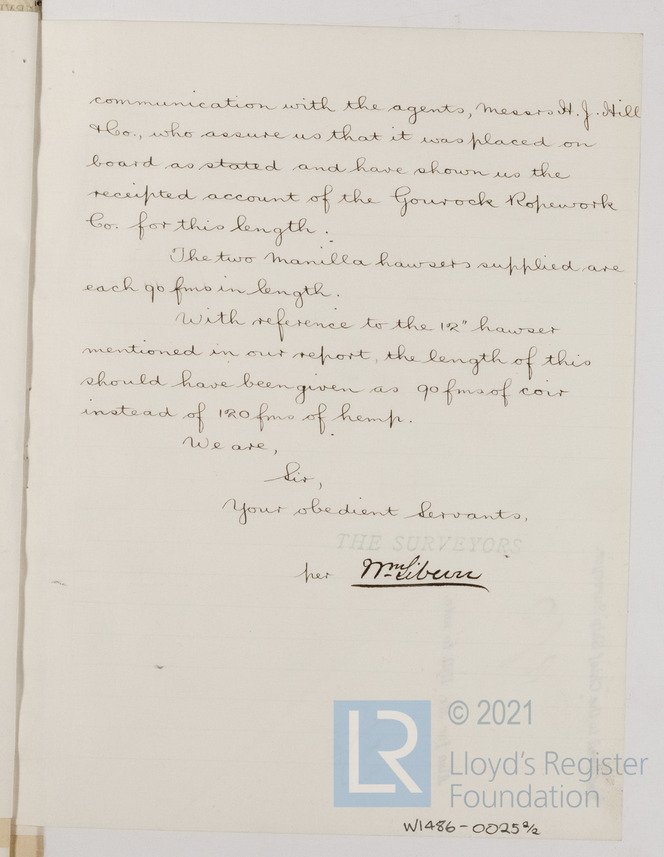 communication with the agents, Messrs H. J. Hill
& Co., who assure us that it was placed on
board as stated and have shown us the
receipted account of the Gourock Ropework
Co. for this length.
The two Manilla hawsers supplied are
each 90 fms in length.
With reference to the 12" hawser
mentioned in our report, the length of this
should have been given as 90 fms of coir
instead of 120 fms of hemp.
We are,
Sir,
Your obedient Servants,
THE SURVEYORS
per Wm
LR
© 2021
Lloyd's Register
Foundation
W1486-0025 2/2